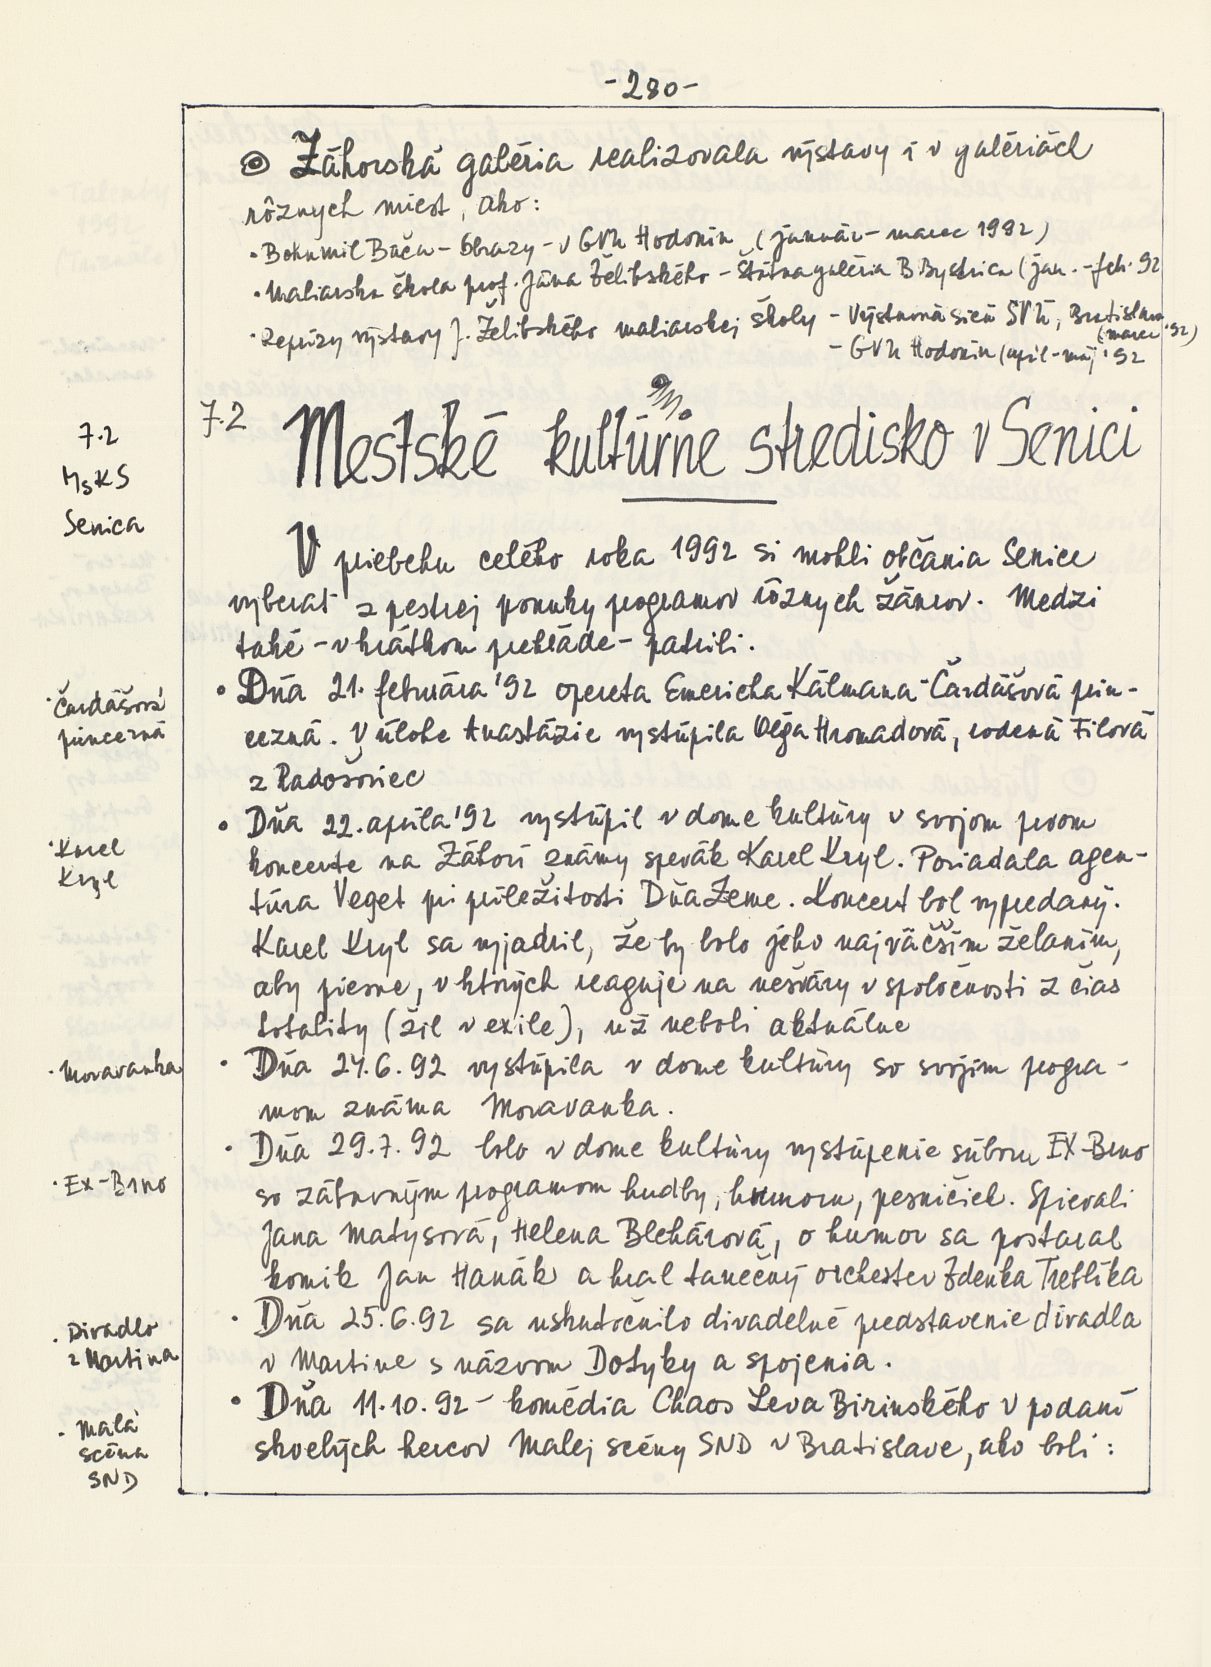 -280-
Záhorská galéria realizovala výstavy i v galériách
rôznych miest, ako:
• Bohumil Bača - Obrazy - v GVU Hodonín (január - marec 1992)
• Maliarska škola prof. Jána Želibského - Štátna galéria B Bystrica (jan. - feb. 92
• Reprízy výstavy J. Želibského maliarskej školy - Výstavná sieň SVÚ, Bratislava
(marec '92)
- GVU Hodonín (apríl - máj '92
7.2
MsKS
Senica
7.2 Mestské kultúrne stredisko v Senici
V priebehu celého roka 1992 si mohli občania Senice
vyberať z pestrej ponuky programov rôznych žánrov. Medzi
také - v krátkom prehľade - patrili.
• Čardášová
princezná
• Dňa 21. februára '92 opereta Emericha Kálmana - Čardášová prin-
cezná. V úlohe Anastázie vystúpila Oľga Hromadová, rodená Filová
z Radošoviec
• Karel
Kryl
• Dňa 22. apríla '92 vystúpil v dome kultúry v svojom prvom
koncerte na Záhorí známy spevák Karel Kryl. Poriadala agen-
túra Veget pri príležitosti Dňa Zeme. Koncert bol vypredaný.
Karel Kryl sa vyjadril, že by bolo jeho najväčším želaním,
aby piesne, v ktorých reaguje na nešváry v spoločnosti z čias
totality (žil v exile), už neboli aktuálne
• Moravanka
• Dňa 24.6.92 vystúpila v dome kultúry so svojím progra-
mom známa Moravanka.
• Dňa 29.7.92 bolo v dome kultúry vystúpenie súboru EX-Brno
• Ex-Brno
so zábavným programom hudby, humoru, pesničiek. Spievali
Jana Matysová, Helena Blehárová, o humor sa postaral
komik Jan Hanák a hral tanečný orchester Zdenka Treblíka
• Divadlo
z Martina
• Dňa 25.6.92 sa uskutočnilo divadelné predstavenie divadla
v Martine s názvom Dotyky a spojenia.
• Malá
scéna
SND
• Dňa 11.10.92 - komédia Chaos Leva Birinského v podaní
skvelých hercov Malej scény SND v Bratislave, ako boli: